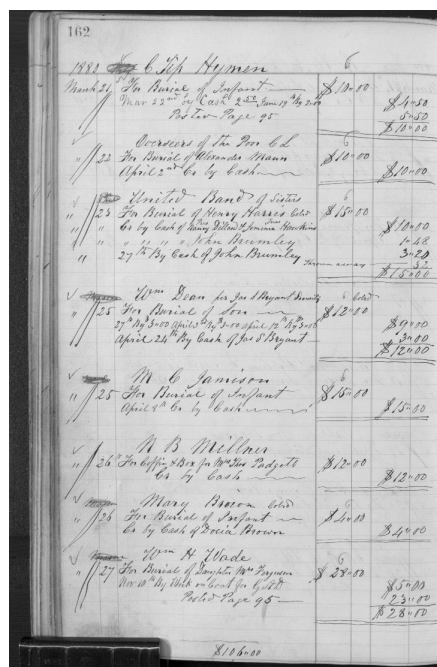 162
1880 C Tip Hymen 6
March 21 For Burial of Infant $10"00
Mar 22nd By Cash 2.50 June 19th By 2.00 $4"50
Posted Page 95 5"50
$10"00
Overseers of the Poor C L 6
" 22 For Burial of Alexander Mann $10"00
April 2nd Cr by Cash $10"00
United Band of Sisters 6
" 23 For Burial of Henry Harris Cold $15"00
" Cr by Cash of Nancy Dillard & Jemima Hawkins $10"00
" " " " " John Brumley 1"48
" 27th By Cash of John Brumley 3"20
Thrown away 32
$15"00
Wm Dean for Jas S Bryant Security 6 Cold
" 25 For Burial of Son $12"00
27th By 3"00 April 5th By 3"00 April 12th By 3"00 $9"00
April 24th By Cash of Jas S Bryant 3"00
$12"00
M C Jamison 6
" 25 For Burial of Infant $15"00
April 9th Cr by Cash $15"00
N B Millner 6
" 26th For Coffin & Box for Mrs Padgett $12"00
Cr by Cash $12"00
Mary Brown Cold 6
" 26 For Burial of Infant $4"00
Cr by Cash of Docia Brown $4"00
Wm H Wade 6
" 27 For Burial of Daughter Mrs Ferguson $28"00
Nov 10th By Work on Coat for $5"00
Posted Page 95 23"00
$28"00
$106"00